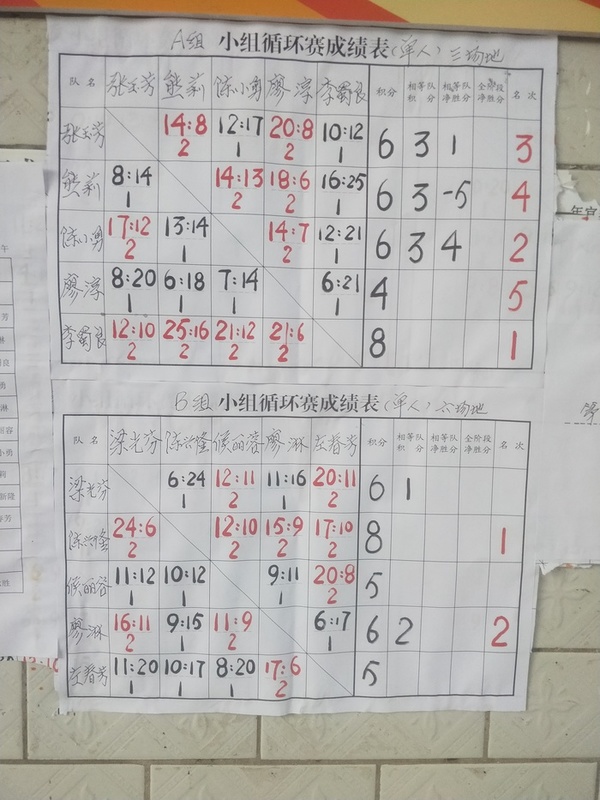 A组 小组循环赛成绩表(单人) 三场地
队名 张玉芳 熊莉 陈小勇 廖淳 李蜀良 积分 相等队积分 相等队净胜分 全阶段净胜分 名次
张玉芳 14:8 2 12:17 1 20:8 2 10:12 1 6 3 1 3
熊莉 8:14 1 14:13 2 18:6 2 16:25 1 6 3 -5 4
陈小勇 17:12 2 13:14 1 14:7 2 12:21 1 6 3 4 2
廖淳 8:20 1 6:18 1 7:14 1 6:21 1 4 5
李蜀良 12:10 2 25:16 2 21:12 2 21:6 2 8 1
B组 小组循环赛成绩表(单人) 六场地
队名 梁光芬 陈兴隆 侯丽蓉 廖淋 左春芳 积分 相等队积分 相等队净胜分 全阶段净胜分 名次
梁光芬 6:24 1 12:11 2 11:16 1 20:11 2 6 1
陈兴隆 24:6 2 12:10 2 15:9 2 17:10 2 8 1
侯丽蓉 11:12 1 10:12 1 9:11 1 20:8 2 5
廖淋 16:11 2 9:15 1 11:9 2 6:17 1 6 2 2
左春芳 11:20 1 10:17 1 8:20 1 17:6 2 5